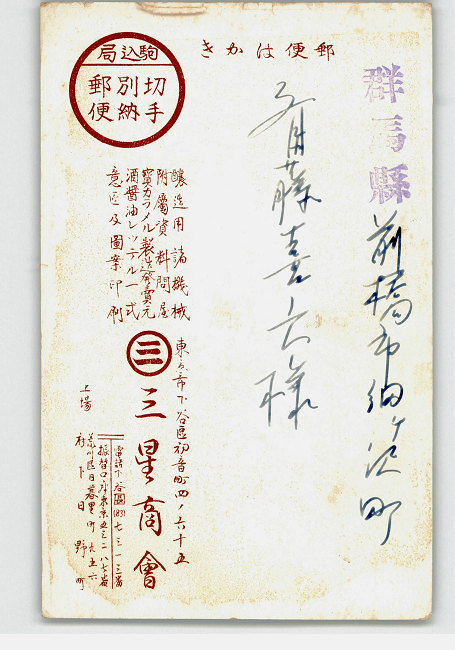 郵便はかき
駒込局
切手別納郵便
群馬縣
前橋市細ヶ沢町
斎藤喜六様
醸造用諸機械
附屬資料問屋
寳カラメル製造發賣元
酒醤油レッテル一式
意匠及圖案印刷
東京市下谷區初音町四ノ六十五
㊂ 三星商會
電話下谷(83)七三一三番
振替口座東京五三二八七番
工場
荒川區日暮里町九五六
府下日野町